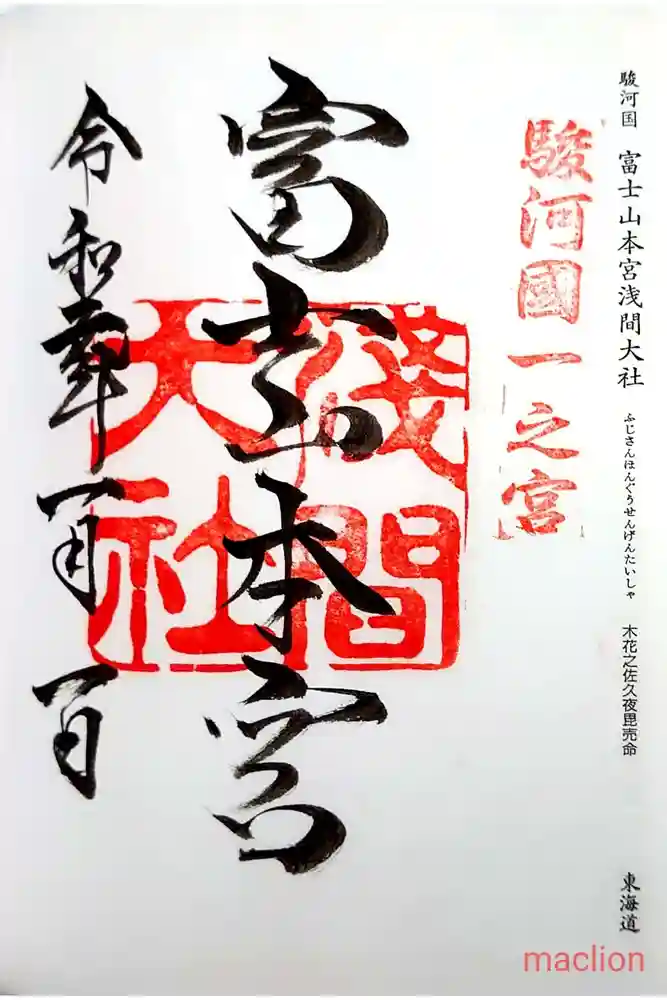 駿河国 富士山本宮浅間大社 ふじさんほんぐうせんげんたいしゃ 木花之佐久夜毘売命 東海道
駿河國一之宮
富士山本宮
淺間大社
令和年一月一日
maclion